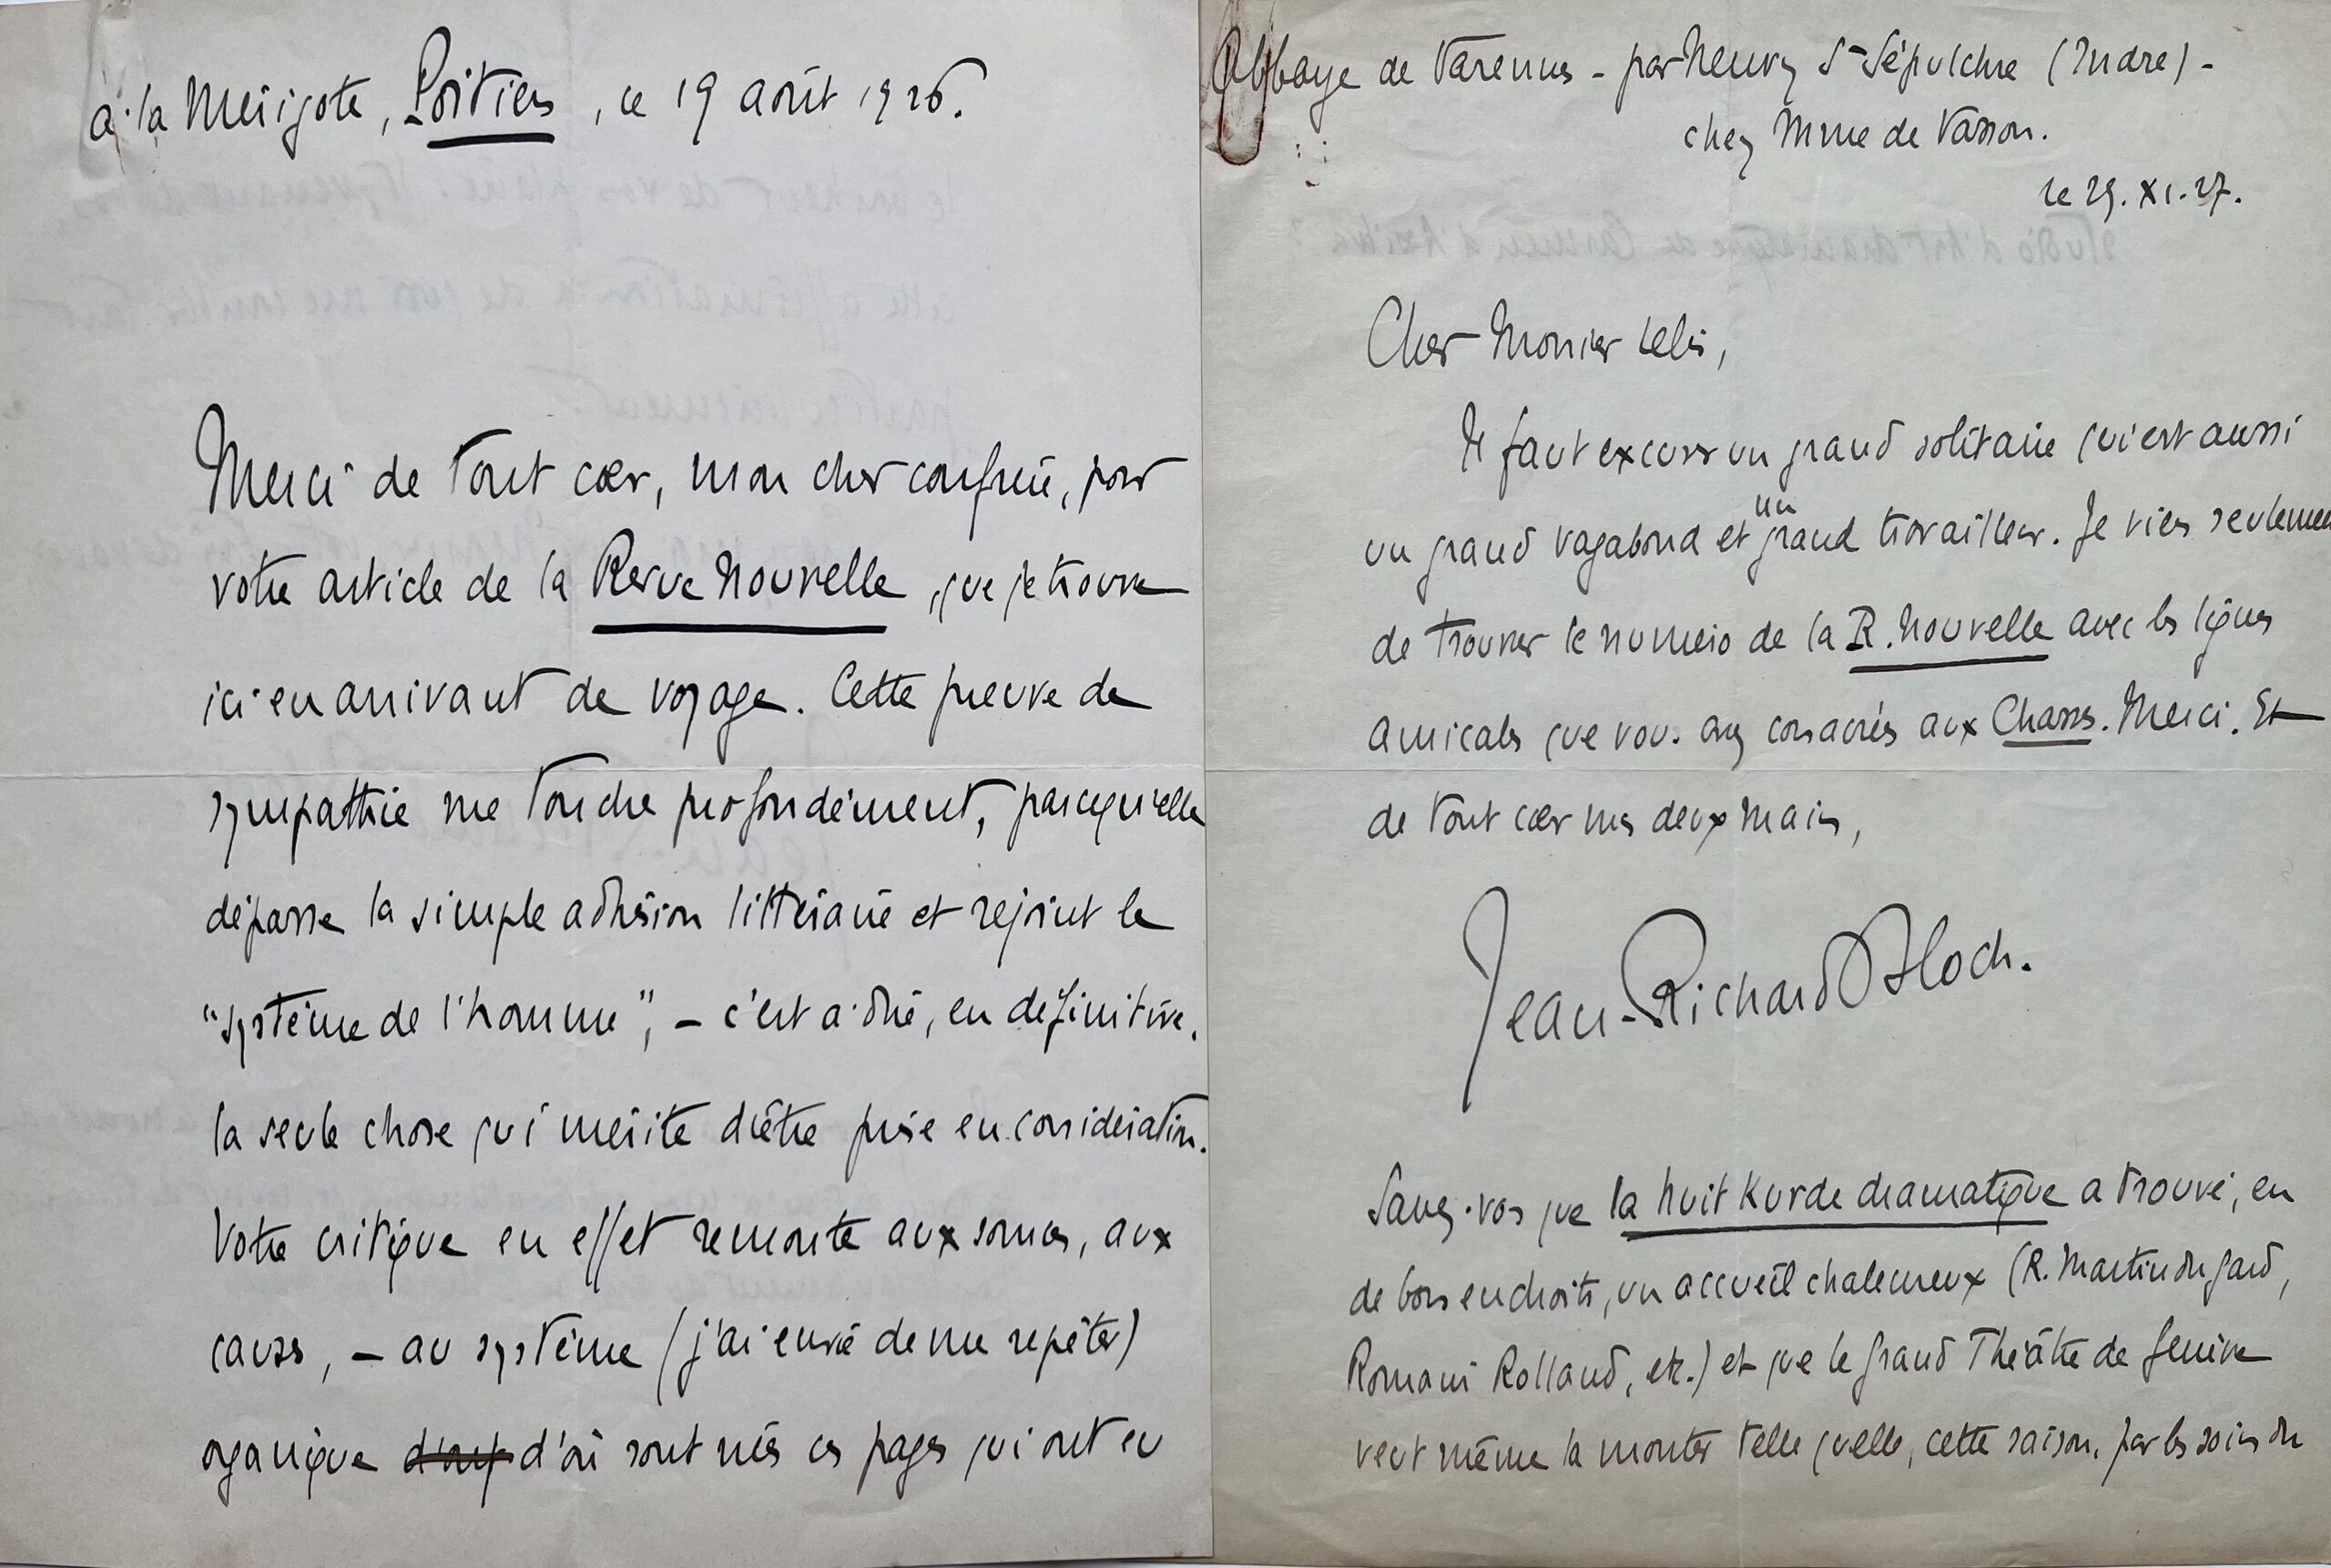 à la Mérigote, Poitiers, ce 19 août 1926.
Merci de tout cœr, mon cher confrère, pour
votre article de la Revue Nouvelle, que je trouve
ici en arrivant de voyage. Cette preuve de
sympathie me touche profondément, parcequ'elle
dépasse la simple adhésion littéraire et rejoint le
"système de l'homme", – c'est à dire, en définitive,
la seule chose qui mérite d'être prise en considération.
Votre critique en effet remonte aux sources, aux
causes, – au système (j'ai envie de me répéter)
organique d'où sont nées ces pages qui ont eu
Abbaye de Varennes – par Neuvy St Sépulchre (Indre) –
chez Mme de Vasson.
le 29. XI. 27.
Cher Monsier
Il faut excuser un grand solitaire qui est aussi
un grand vagabond et un grand travailleur. Je viens seulement
de trouver le numéro de la R. Nouvelle avec les lignes
amicales que vous avez consacrées aux Chasses. Merci. Et
de tout cœr mes deux mains,
Jean-Richard Bloch.
Savez-vous que la Nuit Kurde dramatique a trouvé, en
de bons endroits, un accueil chaleureux (R. Martin du Gard,
Romain Rolland, etc.) et que le Grand Théâtre de Genève
veut même la monter telle quelle, cette saison, par les soins du